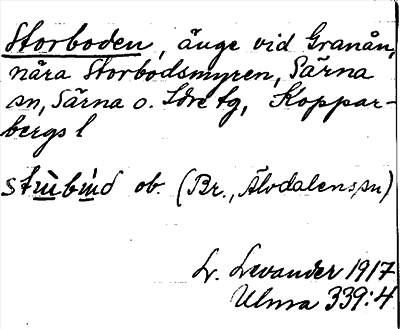 Storboden, änge vid Granån,
nära Storbodsmyren, Särna
sn, Särna o. Idre tg, Koppar-
bergs l
ob. (Br., Älvdalenspn)
L. Levander 1917
Ulma 339:4